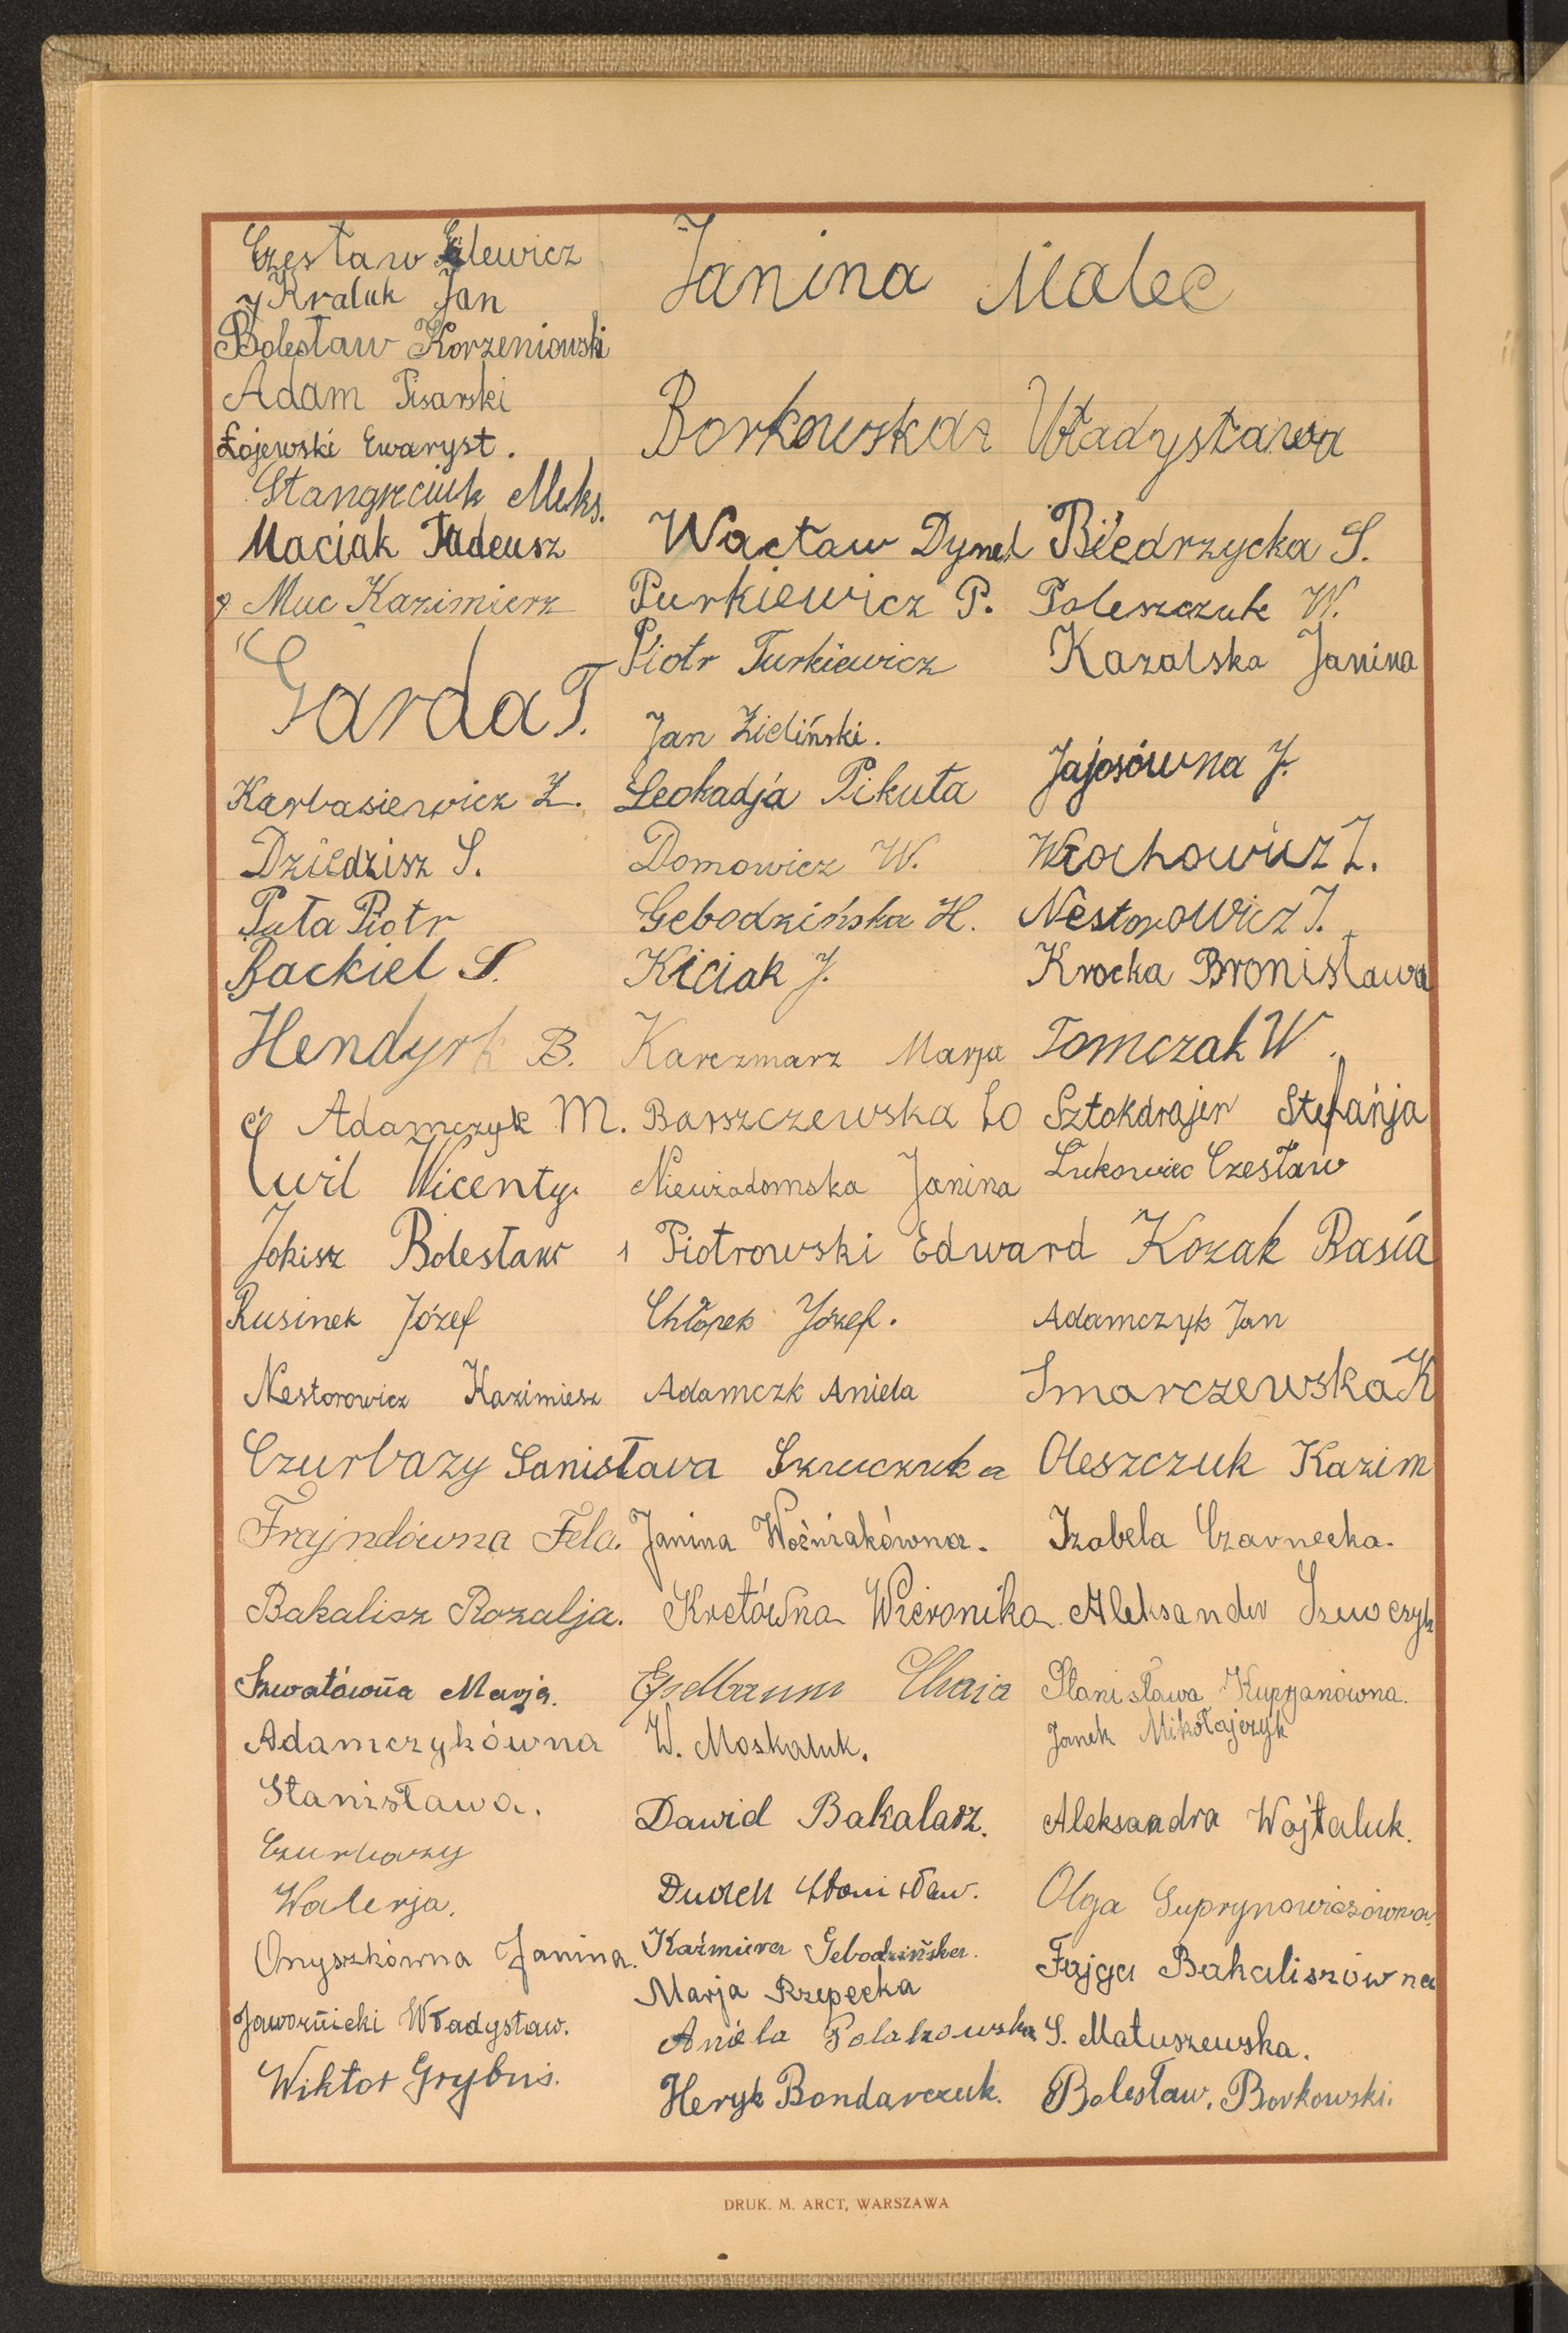 Czesław Gilewicz
Kraluk Jan
Bolesław Korzeniowski
Adam Pisarski
Łojewski Ewaryst.
Stangrciuk Aleks.
Maciak Tadeusz
Muc Kazimierz
Garda T.
Karbasiewicz Z.
Dziedzisz S.
Puta Piotr
Backiel S.
Hendyrk B.
Adamczyk M.
Cwil Wicenty.
Jokisz Bolesław
Rusinek Józef
Nestorowicz Kazimiesz
Czurbazy Sanisława
Frajndówna Fela.
Bakalisz Rozalja.
Szwatówna Marja.
Adamczykówna
Stanisława.
Czurbazy
Walerja.
Onyszkówna Janina.
Jawornicki Władysław.
Wiktor Grybus.
Janina Malec
Borkowska Władysława
Wacław Dynel
Purkiewicz P.
Piotr Turkiewicz
Jan Zieliński.
Leokadja Pikuta
Domowicz W.
Gebodzińska H.
Kiciak J.
Karczmarz Marja
Barszczewska Lo
Niewiadomska Janina
Piotrowski Edward
Chłopek Józef.
Adamczk Aniela
Janina Woźniakówna.
Kretówna Wieronika
Chaia
W. Moskaluk.
Dawid Bakalarz.
Dudek Stanisław.
Kaźmiera Gebodzińska.
Marja Rzepecka
Aniela Polakowska
Heryk Bondarczuk.
Biedrzycka S.
Poleszczuk W.
Kazalska Janina
Jajosówna J.
Włochowicz J.
Nestorowicz J.
Krocka Bronisława
Tomczak W.
Sztokdrajer Stefańja
Lukowiec Czesław
Kozak Basia
Adamczyk Jan
Smarczewska K
Oleszczuk Kazim
Izabela Czarnecka.
Aleksander Szewczyk
Stanisława Kuprjanówna.
Janek Mikołajczyk
Aleksandra Wojtaluk.
Olga Suprynowiczówna.
Fajga Bakaliszówna
S. Matuszewska.
Bolesław. Borkowski.
DRUK. M. ARCT, WARSZAWA